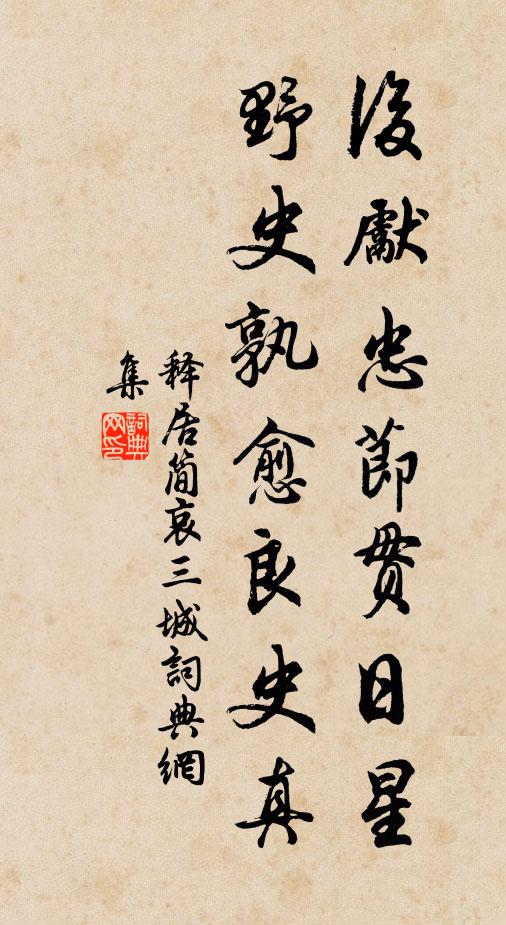 後獻忠節贯日星
野史孰愈良史真
释居简哀三城詞典網
集
詞典网印